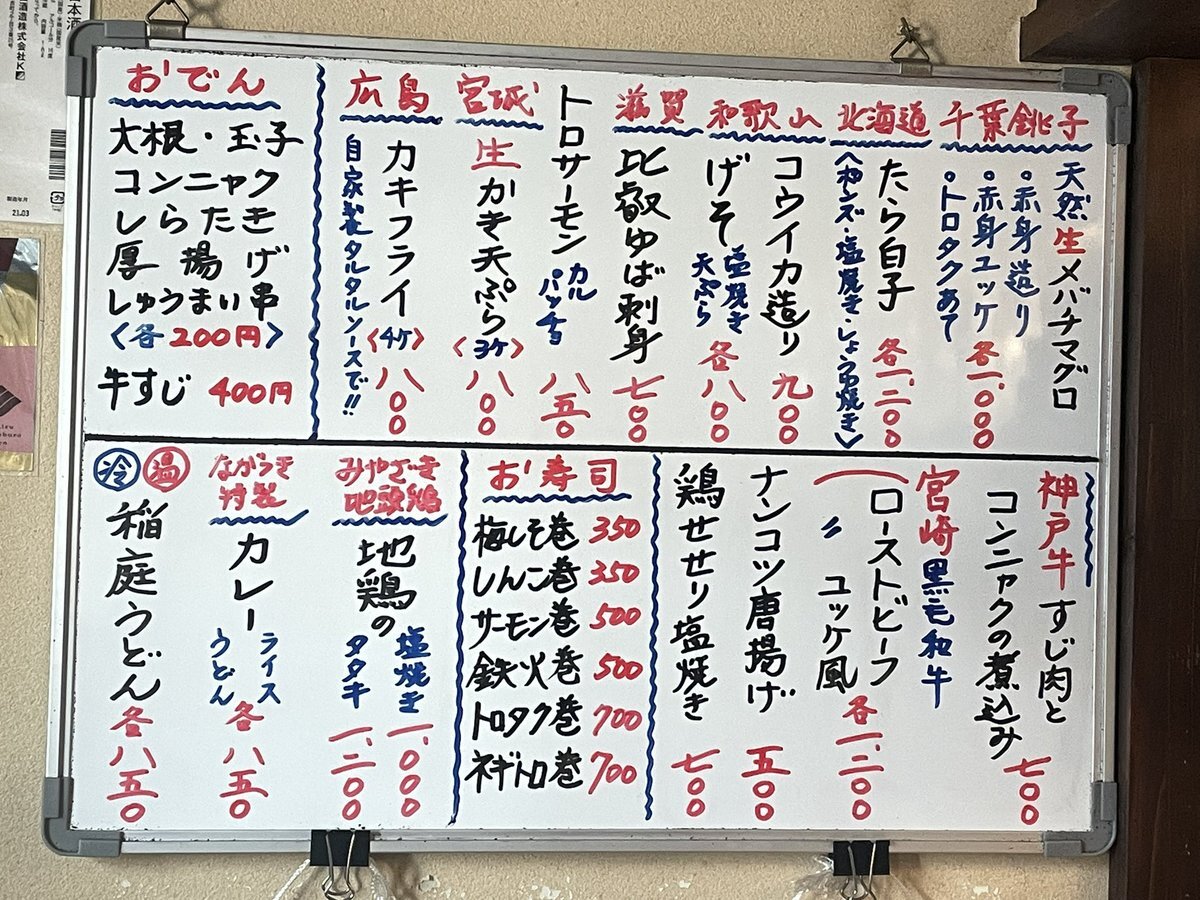 千葉銚子
天然生メバチマグロ
・赤身造り
・赤身ユッケ 各一、〇〇〇
・トロタクあて
北海道
たら白子 各一、二〇〇
〈ポンズ・塩焼き・しょうゆ焼き〉
和歌山
コウイカ造り 九〇〇
げそ 塩焼き 天ぷら 各八〇〇
滋賀
比叡ゆば刺身 七〇〇
トロサーモン カルパッチョ 八五〇
宮城
生かき天ぷら〈3ケ〉 八〇〇
広島
カキフライ〈4ケ〉 八〇〇
自家製タルタルソースで!!
おでん
大根・玉子
コンニャク
しらたき
厚揚げ
しゅうまい串
〈各200円〉
牛すじ 400円
神戸牛すじ肉と
コンニャクの煮込み 七〇〇
宮崎黒毛和牛
ローストビーフ
〃 ユッケ風 各一、二〇〇
ナンコツ唐揚げ 五〇〇
鶏せせり塩焼き 七〇〇
お寿司
梅しそ巻 350
しんこ巻 350
サーモン巻 500
鉄火巻 500
トロタク巻 700
ネギトロ巻 700
みやざき
地頭鶏
地鶏の
塩焼き 一、〇〇〇
タタキ 一、二〇〇
ながうき
特製
カレー
ライス
うどん
各八五〇
冷 温
稲庭うどん 各八五〇
酒造株式会社
製造年月
21.03